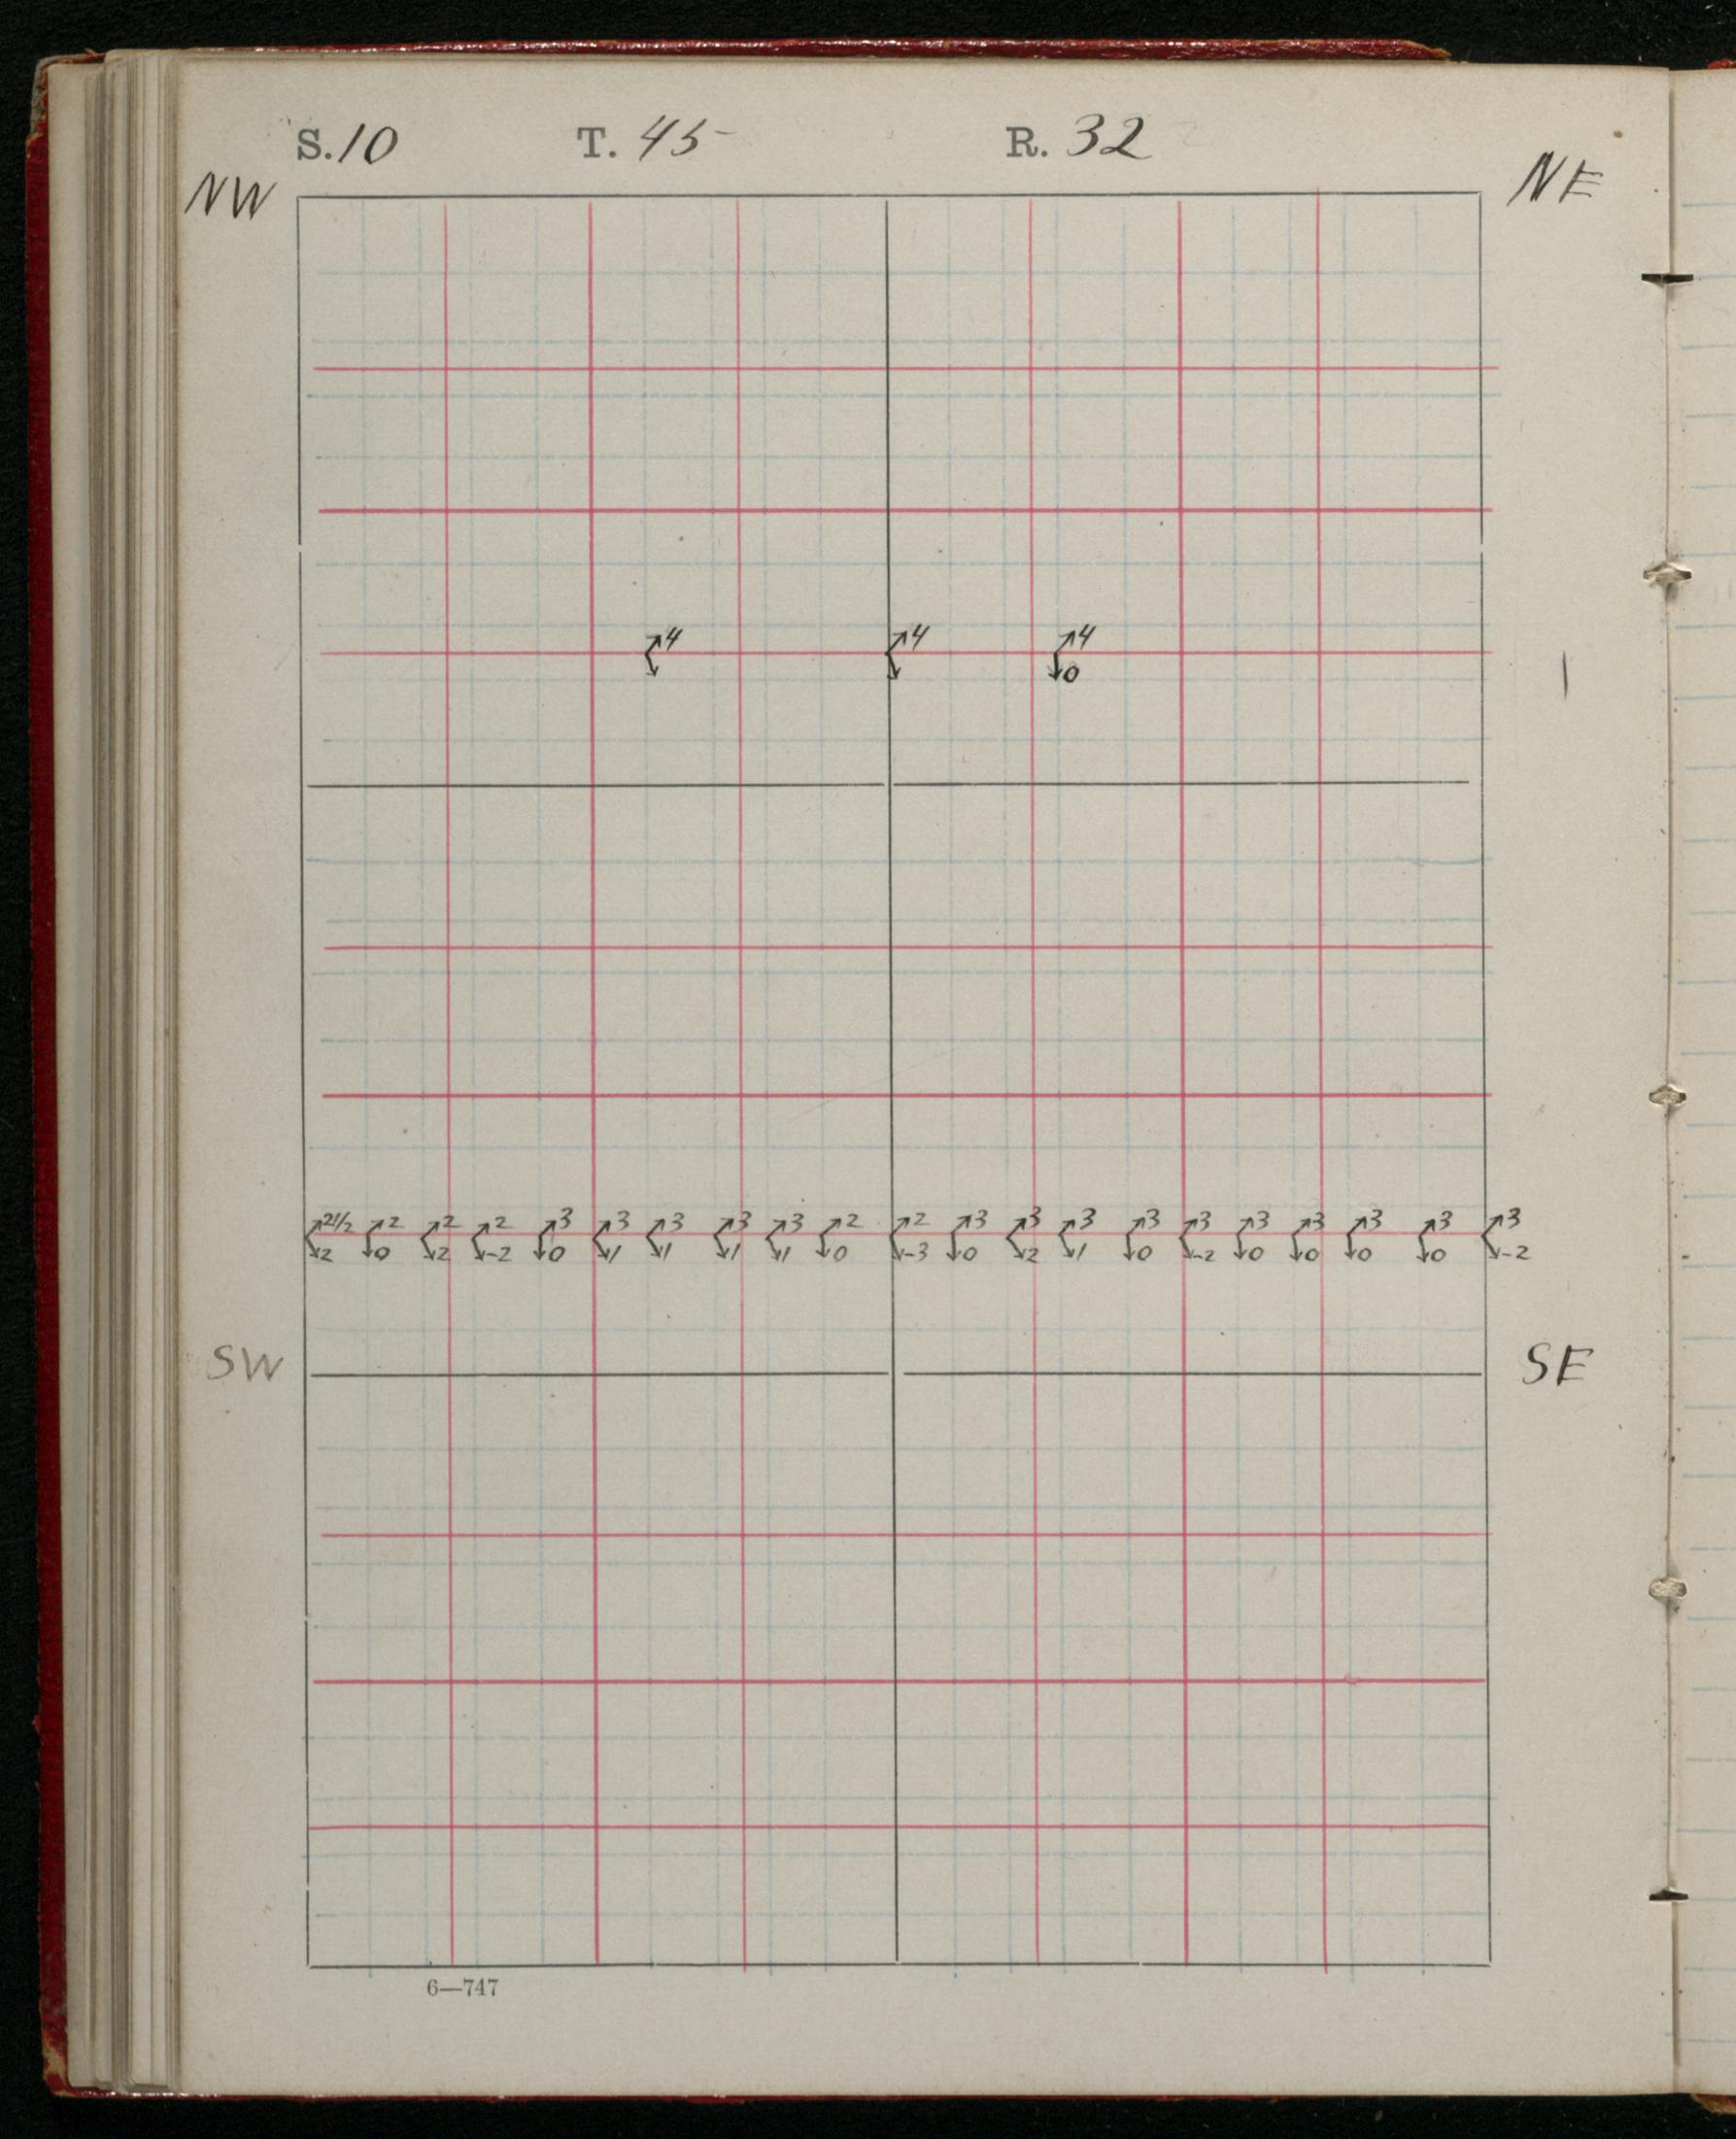 S. 10 T. 45 R. 32
NW NE
4 4 4
0
2 1/2 2 2 2 3 3 3 3 3 2 2 3 3 3 3 3 3 3 3 3 3
2 0 2 -2 0 1 1 1 1 0 -3 0 2 1 0 -2 0 0 0 0 -2
SW SE
6—747